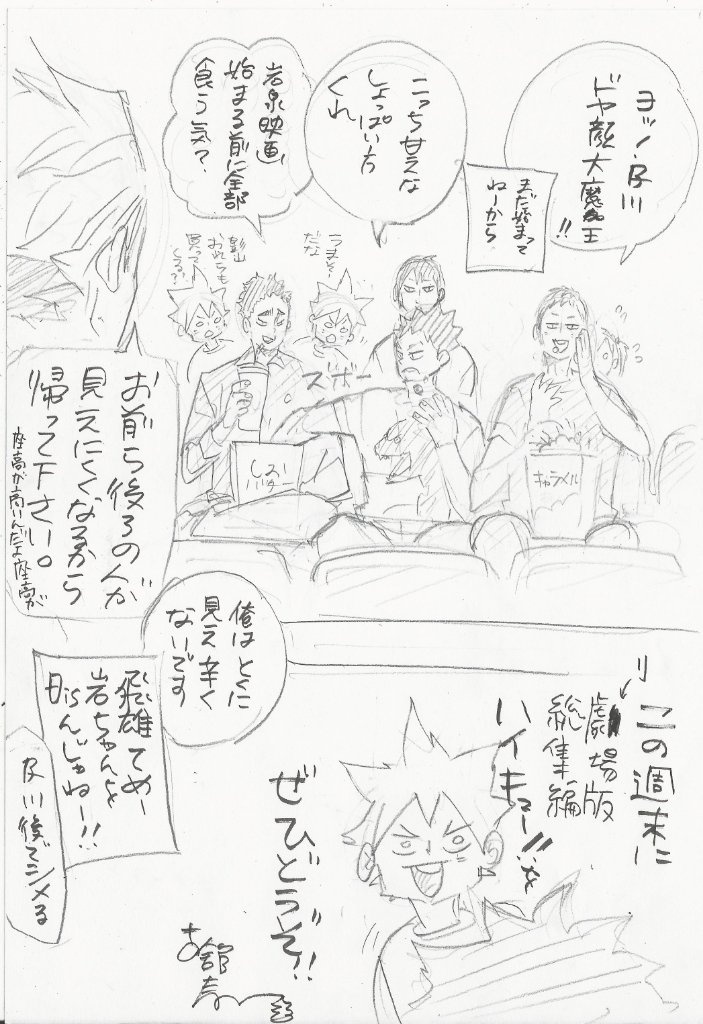 ヨッ！及川
ドヤ顔大魔王
!!
まだ始まって
ねーから
こっち甘えな
しょっぱい方
くれ
岩泉映画
始まる前に全部
食う気？
うまそー
だな
影山
おれらも
買ってくる??
ズボー
しお
バター
キャラメル
お前ら後ろの人が
見えにくくなるから
帰って下さい。
座高が高いんだよ座高が
俺はとくに
見え辛く
ないです
飛雄てめー
岩ちゃんを
disんじゃねー!!
及川後でシメる
この週末に
劇場版
総集編
ハイキュー!!を
ぜひどうぞ!!
古舘春一